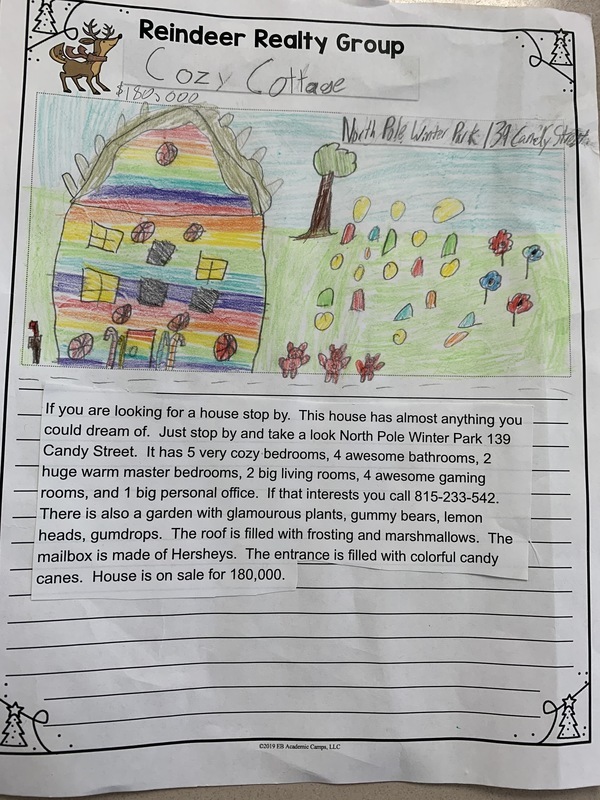 Reindeer Realty Group
Cozy Cottage
$180,000
North Pole, Winter Park 139 Candy Street
If you are looking for a house stop by.  This house has almost anything you
could dream of.  Just stop by and take a look North Pole Winter Park 139
Candy Street.  It has 5 very cozy bedrooms, 4 awesome bathrooms, 2
huge warm master bedrooms, 2 big living rooms, 4 awesome gaming
rooms, and 1 big personal office.  If that interests you call 815-233-542.
There is also a garden with glamourous plants, gummy bears, lemon
heads, gumdrops.  The roof is filled with frosting and marshmallows.  The
mailbox is made of Hersheys.  The entrance is filled with colorful candy
canes.  House is on sale for 180,000.
©2019 EB Academic Camps, LLC